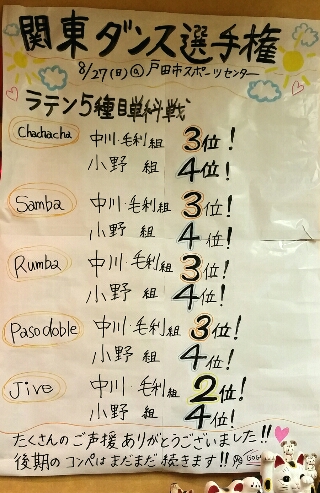 関東ダンス選手権
8/27(日)@戸田市スポーツセンター
ラテン5種目単科戦
Chachacha 中川・毛利組 3位!
小野 組 4位!
Samba 中川・毛利組 3位!
小野 組 4位!
Rumba 中川・毛利組 3位!
小野 組 4位!
Pasodoble 中川・毛利組 3位!
小野 組 4位!
Jive 中川・毛利組 2位!
小野 組 4位!
たくさんのご声援ありがとうございました!!
後期のコンペはまだまだ続きます!!